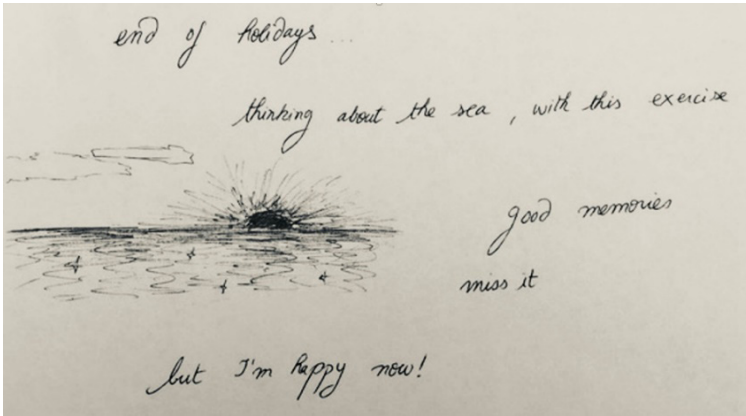 end of holidays...
thinking about the sea, with this exercise
good memories
miss it
but I'm happy now!